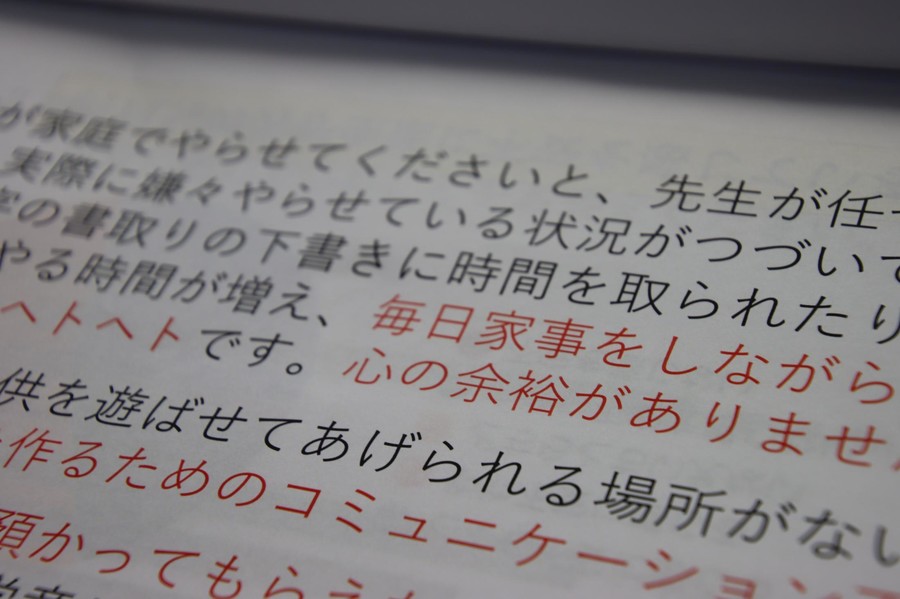 が家庭でやらせてくださいと、先生が任せ
実際に嫌々やらせている状況がつづいて
字の書取りの下書きに時間を取られたり
やる時間が増え、毎日家事をしながら
ヘトヘトです。心の余裕がありません
供を遊ばせてあげられる場所がない
を作るためのコミュニケーション
預かってもらえ